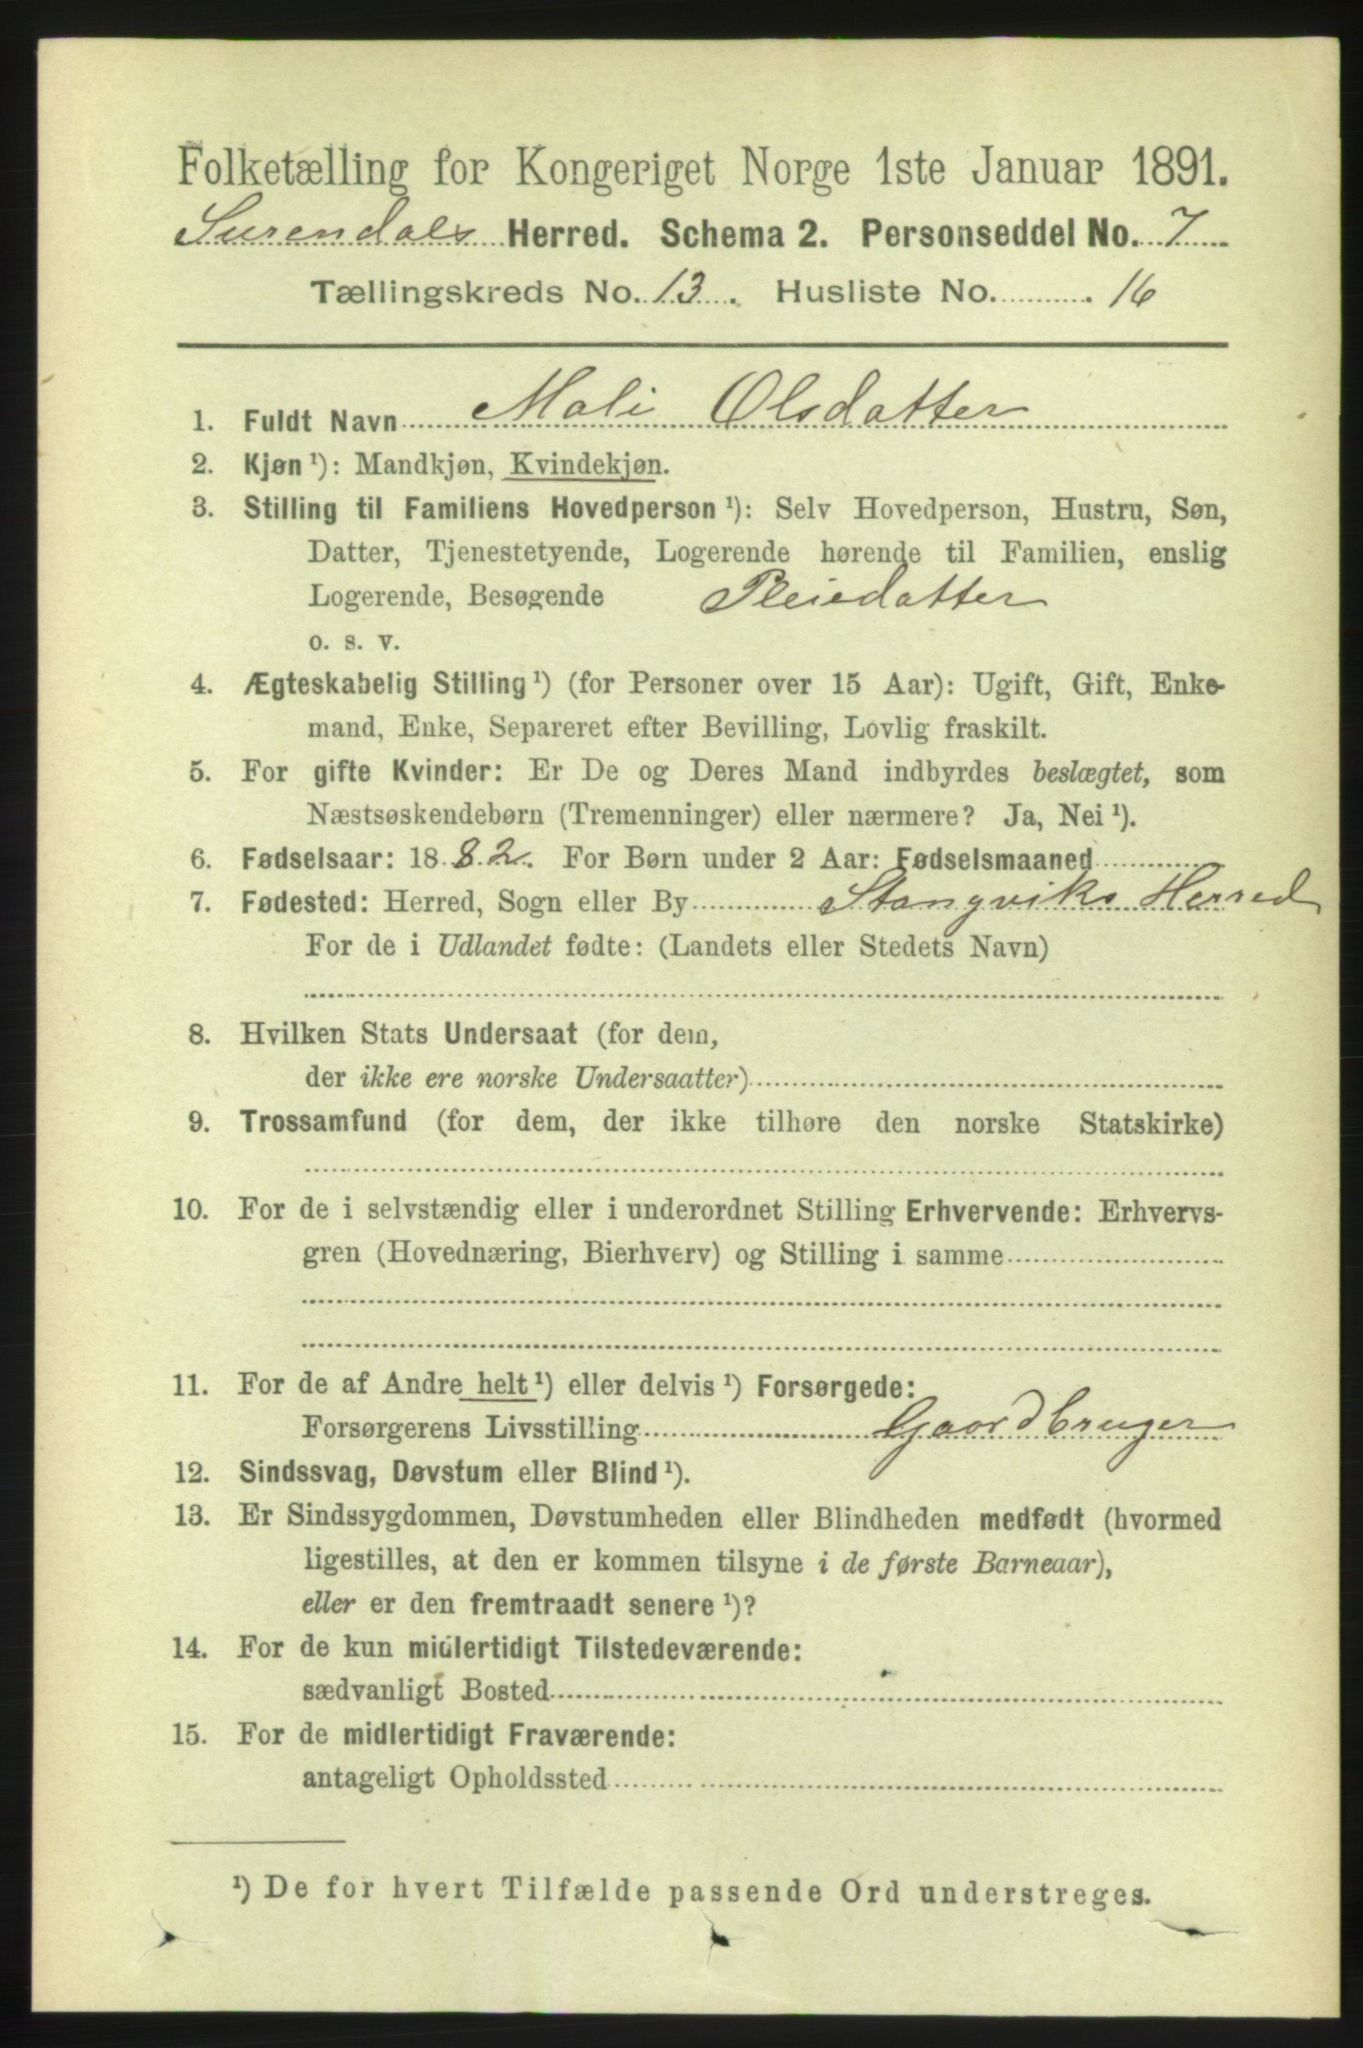 Folketælling for Kongeriget Norge 1ste Januar 1891.
Surendals Herred. Schema 2. Personseddel No. 7
Tællingskreds No. 13. Husliste No. 16
1. Fuldt Navn Mali Olsdatter
2. Kjøn ¹): Mandkjøn, Kvindekjøn.
3. Stilling til Familiens Hovedperson ¹): Selv Hovedperson, Hustru, Søn,
Datter, Tjenestetyende, Logerende hørende til Familien, enslig
Logerende, Besøgende Pleiedatter
o. s. v.
4. Ægteskabelig Stilling ¹) (for Personer over 15 Aar): Ugift, Gift, Enke-
mand, Enke, Separeret efter Bevilling, Lovlig fraskilt.
5. For gifte Kvinder: Er De og Deres Mand indbyrdes beslægtet, som
Næstsøskendebørn (Tremenninger) eller nærmere? Ja, Nei ¹).
6. Fødselsaar: 1882. For Børn under 2 Aar: Fødselsmaaned
7. Fødested: Herred, Sogn eller By Stangviks Herred
For de i Udlandet fødte: (Landets eller Stedets Navn)
8. Hvilken Stats Undersaat (for dem,
der ikke ere norske Undersaatter)
9. Trossamfund (for dem, der ikke tilhøre den norske Statskirke)
10. For de i selvstændig eller i underordnet Stilling Erhvervende: Erhvervs-
gren (Hovednæring, Bierhverv) og Stilling i samme
11. For de af Andre helt ¹) eller delvis ¹) Forsørgede:
Forsørgerens Livsstilling Gaardbruger
12. Sindssvag, Døvstum eller Blind ¹).
13. Er Sindssygdommen, Døvstumheden eller Blindheden medfødt (hvormed
ligestilles, at den er kommen tilsyne i de første Barneaar),
eller er den fremtraadt senere ¹)?
14. For de kun midlertidigt Tilstedeværende:
sædvanligt Bosted
15. For de midlertidigt Fraværende:
antageligt Opholdssted
¹) De for hvert Tilfælde passende Ord understreges.